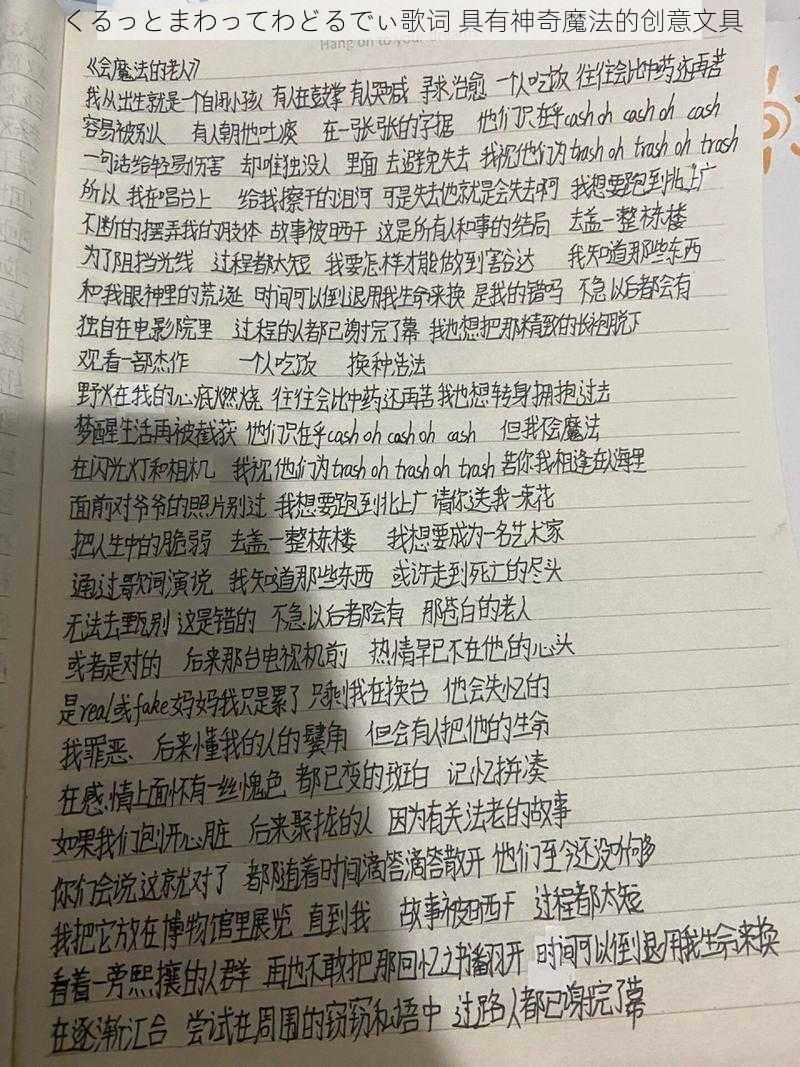 くるっとまわってわどるでぃ歌词 具有神奇魔法的创意文具
Hang on to your dreams
《会魔法的老人》
我从出生就是一个自闭小孩 有人在鼓掌 有人哭喊 寻求治愈 一个人吃饭 往往会比中药还再苦
容易被别人 有人朝他吐痰 在一张张的字据 他们只在乎cash oh cash oh cash
一句话给轻易伤害 却唯独没人 里面 去避免失去 我祝他们为trash oh trash oh trash
所以 我在唱台上 给我擦干的泪河 可是失去他就是会失去啊 我想要跑到北上广
不断的摆弄我的肢体 故事被晒干 这是所有人和事的结局 去盖一整栋楼
为了阻挡光线 过程都太短 我要怎样才能做到害谷达 我知道那些东西
和我眼神里的荒诞 时间可以倒退用我生命来换 是我的错吗 不急以后都会有
独自在电影院里 过程的人都已谢完了幕 我也想把那精致的长袍脱下
观看一部杰作 一个人吃饭 换种活法
野火在我的心底燃烧 往往会比中药还再苦 我也想转身拥抱过去
梦醒生活再被截获 他们只在乎cash oh cash oh cash 但我不会魔法
在闪光灯和相机 我祝他们为trash oh trash oh trash 若你我相逢在人海里
面前对爷爷的照片别过 我想要跑到北上广 请你送我一束花
把人生中的脆弱 去盖一整栋楼 我想要成为一名艺术家
通过歌词演说 我知道那些东西 或许走到死亡的尽头
无法去甄别 这是错的 不急以后都会有 那苍白的老人
或者是对的 后来那台电视机前 热情早已不在他的心头
是real或fake妈妈我只是累了 只剩我在换台 他会失忆的
我罪恶、 后来懂我的人的鬓角 但会有人把他的生命
在感情上面怀有一丝愧色 都已变的斑白 记忆拼凑
如果我们刨开心脏 后来聚拢的人 因为有关法老的故事
你们会说这就对了 都随着时间滴答滴答散开 他们至今还没听够
我把它放在博物馆里展览 直到我 故事被晒干 过程都太短
看着一旁熙攘的人群 再也不敢把那回忆之书翻开 时间可以倒退用我生命来换
在逐渐汇合 尝试在周围的窃窃私语中 过路人都已谢完了幕